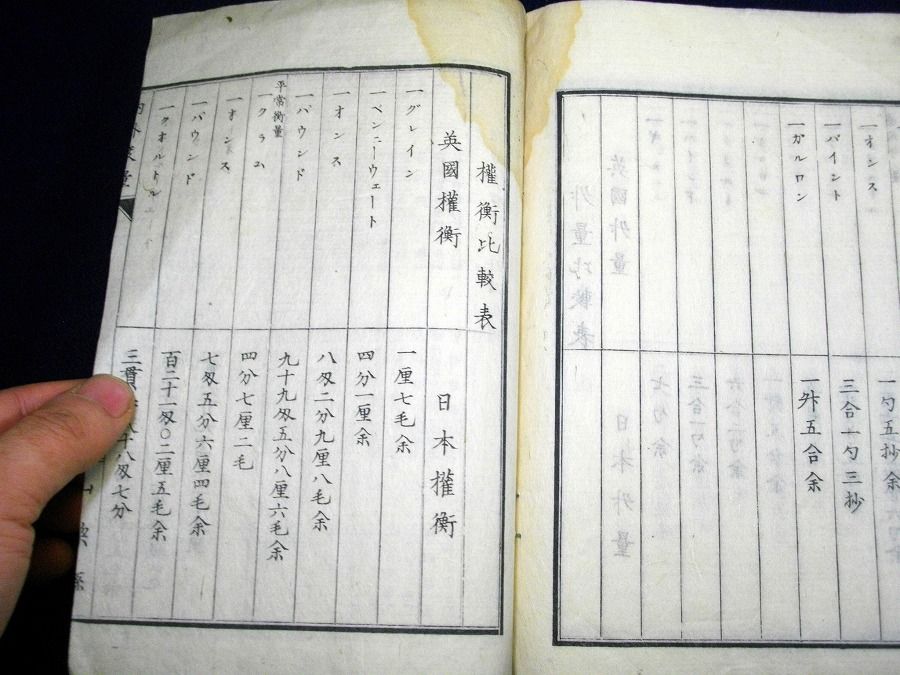 一オンス
一勺五抄余
一パイント
三合一勺三抄
一ガルロン
一升五合余
權衡比較表
英國權衡
日本權衡
一グレイン
一厘七毛余
一ペンニーウェート
四分一厘余
一オンス
八匁二分九厘八毛余
一パウンド
九十九匁五分八厘六毛余
平常衡量
一クラム
四分七厘二毛
一オンス
七匁五分六厘四毛余
一パウンド
百二十一匁〇二厘五毛余
一クオルトル
三貫
八匁七分